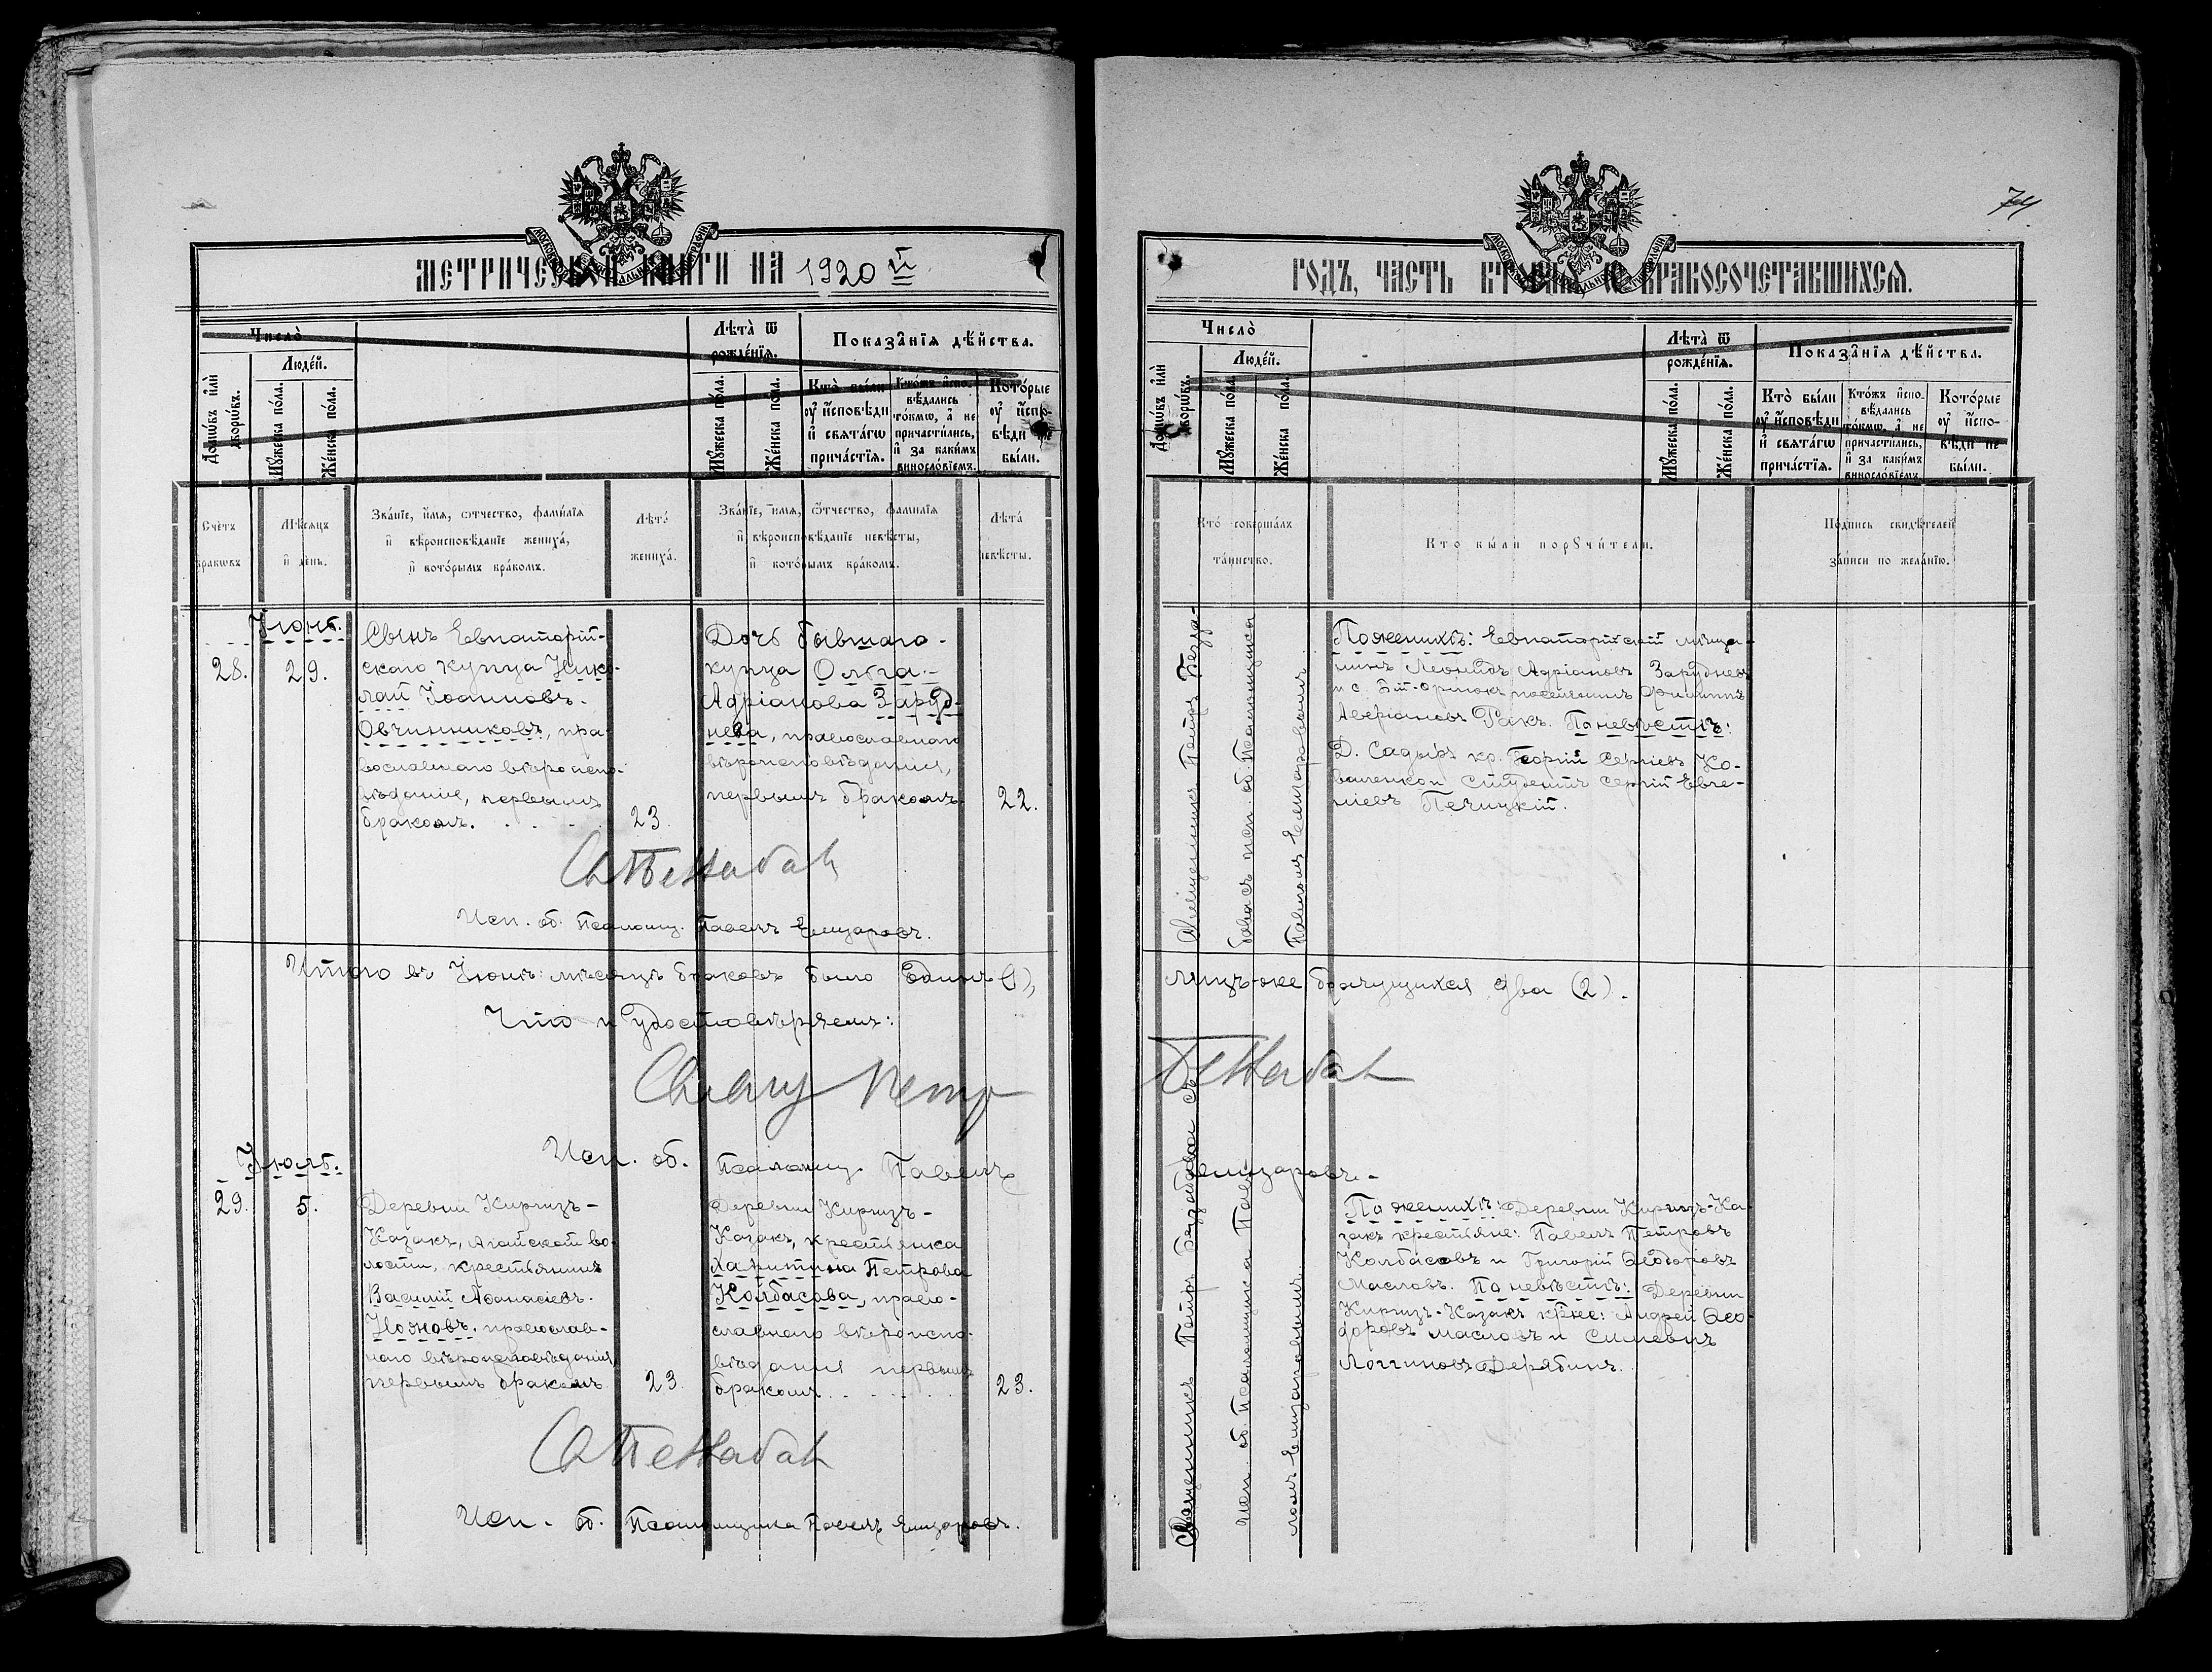 74
МЕТРИЧЕСКОЙ КНИГИ НА 1920 й
ГОДЪ, ЧАСТЬ ВТОРАЯ, О БРАКОСОЧЕТАВШИХСЯ.
Число̀
Людéй.
Домѡ́въ и҆лѝ дворѡ́въ.
Мꙋ́жеска по́ла.
Же́нска по́ла.
Лѣта̀ ѿ рожде́нїѧ.
Мꙋ́жеска по́ла.
Же́нска по́ла.
Показа̑нїѧ дѣ́йства.
Кто̀ бы́ли
ᲂу҆ и҆сповѣди
и҆ свѧта́гѡ
прича́стїѧ.
Кто́жъ и҆спо-
вѣдались
то́кмѡ, а҆ не
причасти́лись,
и҆ за каки́мъ
виносло́вїемъ.
Кото́рые
ᲂу҆ и҆спо-
вѣди не
бы́ли.
Счетъ
браковъ
Мѣсяцъ
и день.
Званїе, имя, отчество, фамилїя
и вѣроисповѣданїе жениха,
и которымъ бракомъ.
Лѣта
жениха.
Званїе, имя, отчество, фамилїя
и вѣроисповѣданїе невѣсты,
и которымъ бракомъ.
Лѣта
невѣсты.
Кто совершалъ
таинство.
Кто были поручители.
Подпись свидѣтелей
записи по желанїю.
Іюнь.
28.
29.
Сынъ Евпаторій-
скаго купца Нико-
лай Іоанновъ.
Овчинниковъ, пра-
вославнаго вѣроиспо-
вѣданія, первымъ
бракомъ.
23.
Дочь бывшаго
купца Ольга
Адріанова Заруд-
нева, православнаго
вѣроисповѣданія,
первымъ бракомъ.
22.
Священникъ Петръ Безза-
бава съ исп. об. Псаломщика
Павломъ Елизаровымъ
По женихѣ: Евпаторійскій мѣща-
нинъ Леонидъ Адріановъ Зарудневъ
и с. поселянинъ Филиппъ
Аверіановъ Ракъ. По невѣстѣ:
Д. Садыръ кр. Георгій Сергіевъ Ко-
валенко и студентъ Сергій Евге-
ніевъ Печицкій.
Исп. об. Псаломщ. Павелъ Елизаровъ.
Итого въ Іюнѣ мѣсяцѣ браковъ было Одинъ (1),
лицъ-же брачущихся два (2).
Что и удостовѣряемъ:
Свящ Петр
Исп. об. Псаломщ. Павелъ
Елизаровъ.
Іюль.
29.
5.
Деревни Киргизъ-
Казакъ, Агайской во-
лости, крестьянинъ
Василій Афанасіевъ.
Ионовъ, православ-
наго вѣроисповѣданія,
первымъ бракомъ
23.
Деревни Киргизъ-
Казакъ, крестьянка
Харитина Петрова
Колбасова, право-
славнаго вѣроиспо-
вѣданія первымъ
бракомъ.
23.
Священникъ Петръ Беззабава съ
исп. об. Псаломщика Пав-
ломъ Елизаровымъ.
По женихѣ: Деревни Киргизъ-Ка-
закъ крестьяне: Павелъ Петровъ
Колбасовъ и Григорій Ѳеодоровъ
Масловъ. По невѣстѣ: Деревни
Киргизъ-Казакъ кр-не: Андрей Ѳео-
доровъ Масловъ и
Логгиновъ Дерябинъ.
Исп. об. Псаломщика Павелъ Елизаровъ.